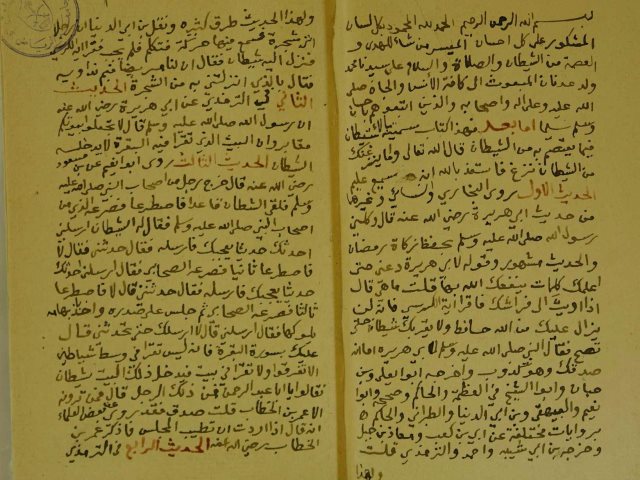 بسم الله الرحمن الرحيم الحمد لله المحمود بكل لسان
المشكور على كل احسان الميسر من شاء للهدى و
العصمة من الشيطان والصلاة والسلام على سيدنا محمد
ولد عدنان المبعوث الى كافة الانس والجان صلى
الله عليه وعلى اله واصحابه والذين اتبعوهم باحسان
وسلم تسليما اما بعد فهذا كتاب سميته
فيما يعتصم به من الشيطان قال الله تعالى واما ينزغنك
من الشيطان نزغ فاستعذ بالله انه سميع عليم
الحديث الاول روى البخاري والنسائي وغيرهما
من حديث ابي هريرة رضي الله عنه قال وكلني
رسول الله صلى الله عليه وسلم بحفظ زكاة رمضان
والحديث مشهور وقوله لابي هريرة دعني حتى
اعلمك كلمات ينفعك الله بها قلت ما هي قال
اذا اويت الى فراشك فاقرا اية الكرسي فانه لن
يزال عليك من الله حافظ ولا يقربك شيطان حتى
تصبح فقال النبي صلى الله عليه وسلم لابي هريرة اما انه
صدقك وهو كذوب واخرجه ابو يعلى وبن
حبان وابو الشيخ في العظمة والحاكم وصححه وابو
نعيم والبيهقي وبن ابي الدنيا والطبراني والحاكم
بروايات مختلفة عن ابي بن كعب ومعاذ بن جبل
وخرجه بن ابي شيبه واحمد والترمذي قلت
ولهذا
ولهذا الحديث طرق كثيرة ونقل بن ابي الدنيا ان رجلا
اتى شجرة فسمع فيها حركة فتكلم فلم يجب فقرا اية الكرسي
فنزل اليه شيطان فقال ان لنا مريضا فبم نداويه
فقال بالذي انزلتني به من الشجرة الحديث
الثاني في الترمذي عن ابي هريرة رضي الله عنه
ان رسول الله صلى الله عليه وسلم قال لا تجعلوا بيوتكم
مقابر وان البيت الذي تقرا فيه البقرة لا يدخله
الشيطان الحديث الثالث روى ابو نعيم عن بن مسعود
رضي الله عنه قال خرج رجل من اصحاب النبي صلى الله عليه
وسلم فلقي الشيطان فاتخذا فاصطرعا فصرعه الذي من
اصحاب النبي صلى الله عليه وسلم فقال له الشيطان ارسلني
احدثك حديثا يعجبك فارسله فقال حدثني فقال لا
فاصطرعا ثانيا فصرعه الصحابي فقال ارسلني احدثك
حديثا يعجبك فارسله فقال حدثني قال لا فاصطرعا
ثالثا فصرعه الصحابي ثم جلس على صدره واخذ بابهامه
يلوكها فقال ارسلني قال لا ارسلك حتى تحدثني قال
عليك بسورة البقرة فانه ليس تقرا في وسط شياطين
الا تفرقوا ولا تقرا في بيت فيدخل ذلك البيت شيطان
فقالوا يا ابا عبد الرحمن فمن ذلك الرجل قال فمن ترونه
الا عمر بن الخطاب قلت صدق فقد روي عن بعض العلماء
انه قال اذا اردت ان تطيب المجلس فاذكر عمر بن
الخطاب رضي الله عنه الحديث الرابع في الترمذي